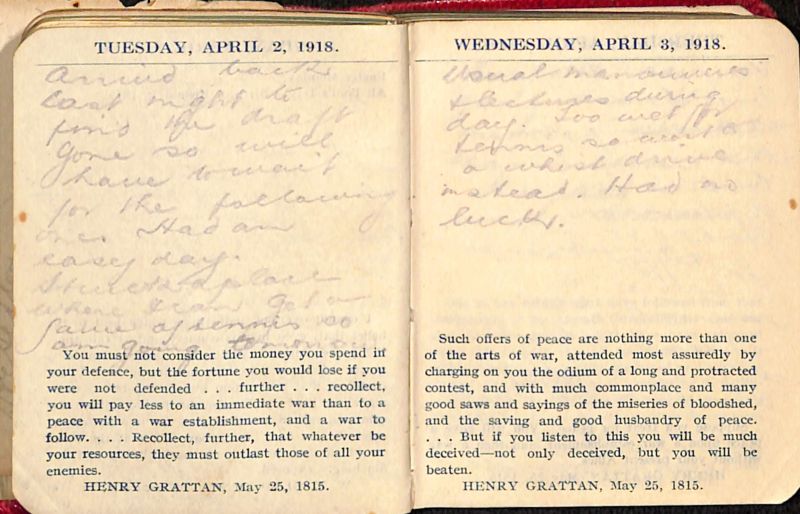 TUESDAY, APRIL 2, 1918.
Arrived back
last night to
find the draft
gone so will
have to wait
for the following
one. Had an
easy day.
Struck a place
where I can get a
game of tennis so
am going tomorrow
You must not consider the money you spend in
your defence, but the fortune you would lose if you
were not defended . . . further . . . recollect,
you will pay less to an immediate war than to a
peace with a war establishment, and a war to
follow. . . . Recollect, further, that whatever be
your resources, they must outlast those of all your
enemies.
HENRY GRATTAN, May 25, 1815.
WEDNESDAY, APRIL 3, 1918.
Usual manouveres
& lectures during
day. Too wet for
tennis so went to
a whist drive
instead. Had no
luck.
Such offers of peace are nothing more than one
of the arts of war, attended most assuredly by
charging on you the odium of a long and protracted
contest, and with much commonplace and many
good saws and sayings of the miseries of bloodshed,
and the saving and good husbandry of peace.
. . . But if you listen to this you will be much
deceived—not only deceived, but you will be
beaten.
HENRY GRATTAN, May 25, 1815.